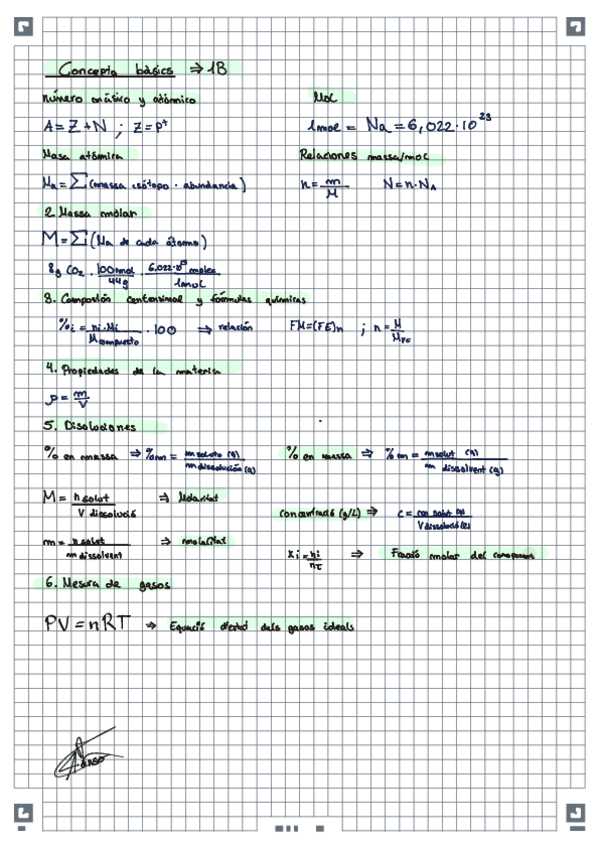 Concepto básics ⇒ 1B
número másico y atómico
Mol
A = Z + N ; Z = p⁺
1mol = Na = 6,022 · 10²³
Masa atómica
Relaciones massa/mol
Ma = ∑(massa isótopo · abundancia)
n = m/M   N = n · N_A
2 Massa molar
M = ∑(Ma de cada átomo)
8g CO₂ ·
44g
1mol
3. Composión centessimal y fórmulas químicas
%i = ni·Mi / M compuesto · 100 ⇒ relación   FM = (FE)n ; n = M/M_FE
4. Propiedades de la materia
ρ = m/V
5. Disoluciones
% en massa ⇒ %m = m soluto (g) / m dissolución (g)
% en massa ⇒ %m = m solut (g) / m dissolvent (g)
M = n solut / V dissolució ⇒ Molaritat
concentració (g/L) ⇒ c = m solut (g) / V dissolució (L)
m = n solut / m dissolvent ⇒ molalitat
xi = ni / nT ⇒ Fracció molar del component
6. Mesura de gasos
PV = nRT ⇒ Equació d'estat dels gasos ideals